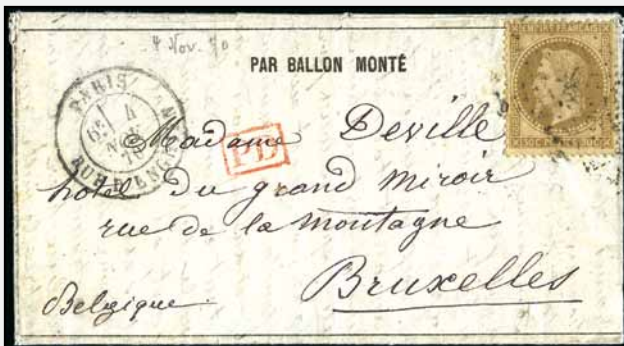 4 Nov. 70
PAR BALLON MONTÉ
PARIS
4
NOV
70
PD
Madame Deville
hotel du grand miroir
rue de la montagne
Bruxelles
Belgique